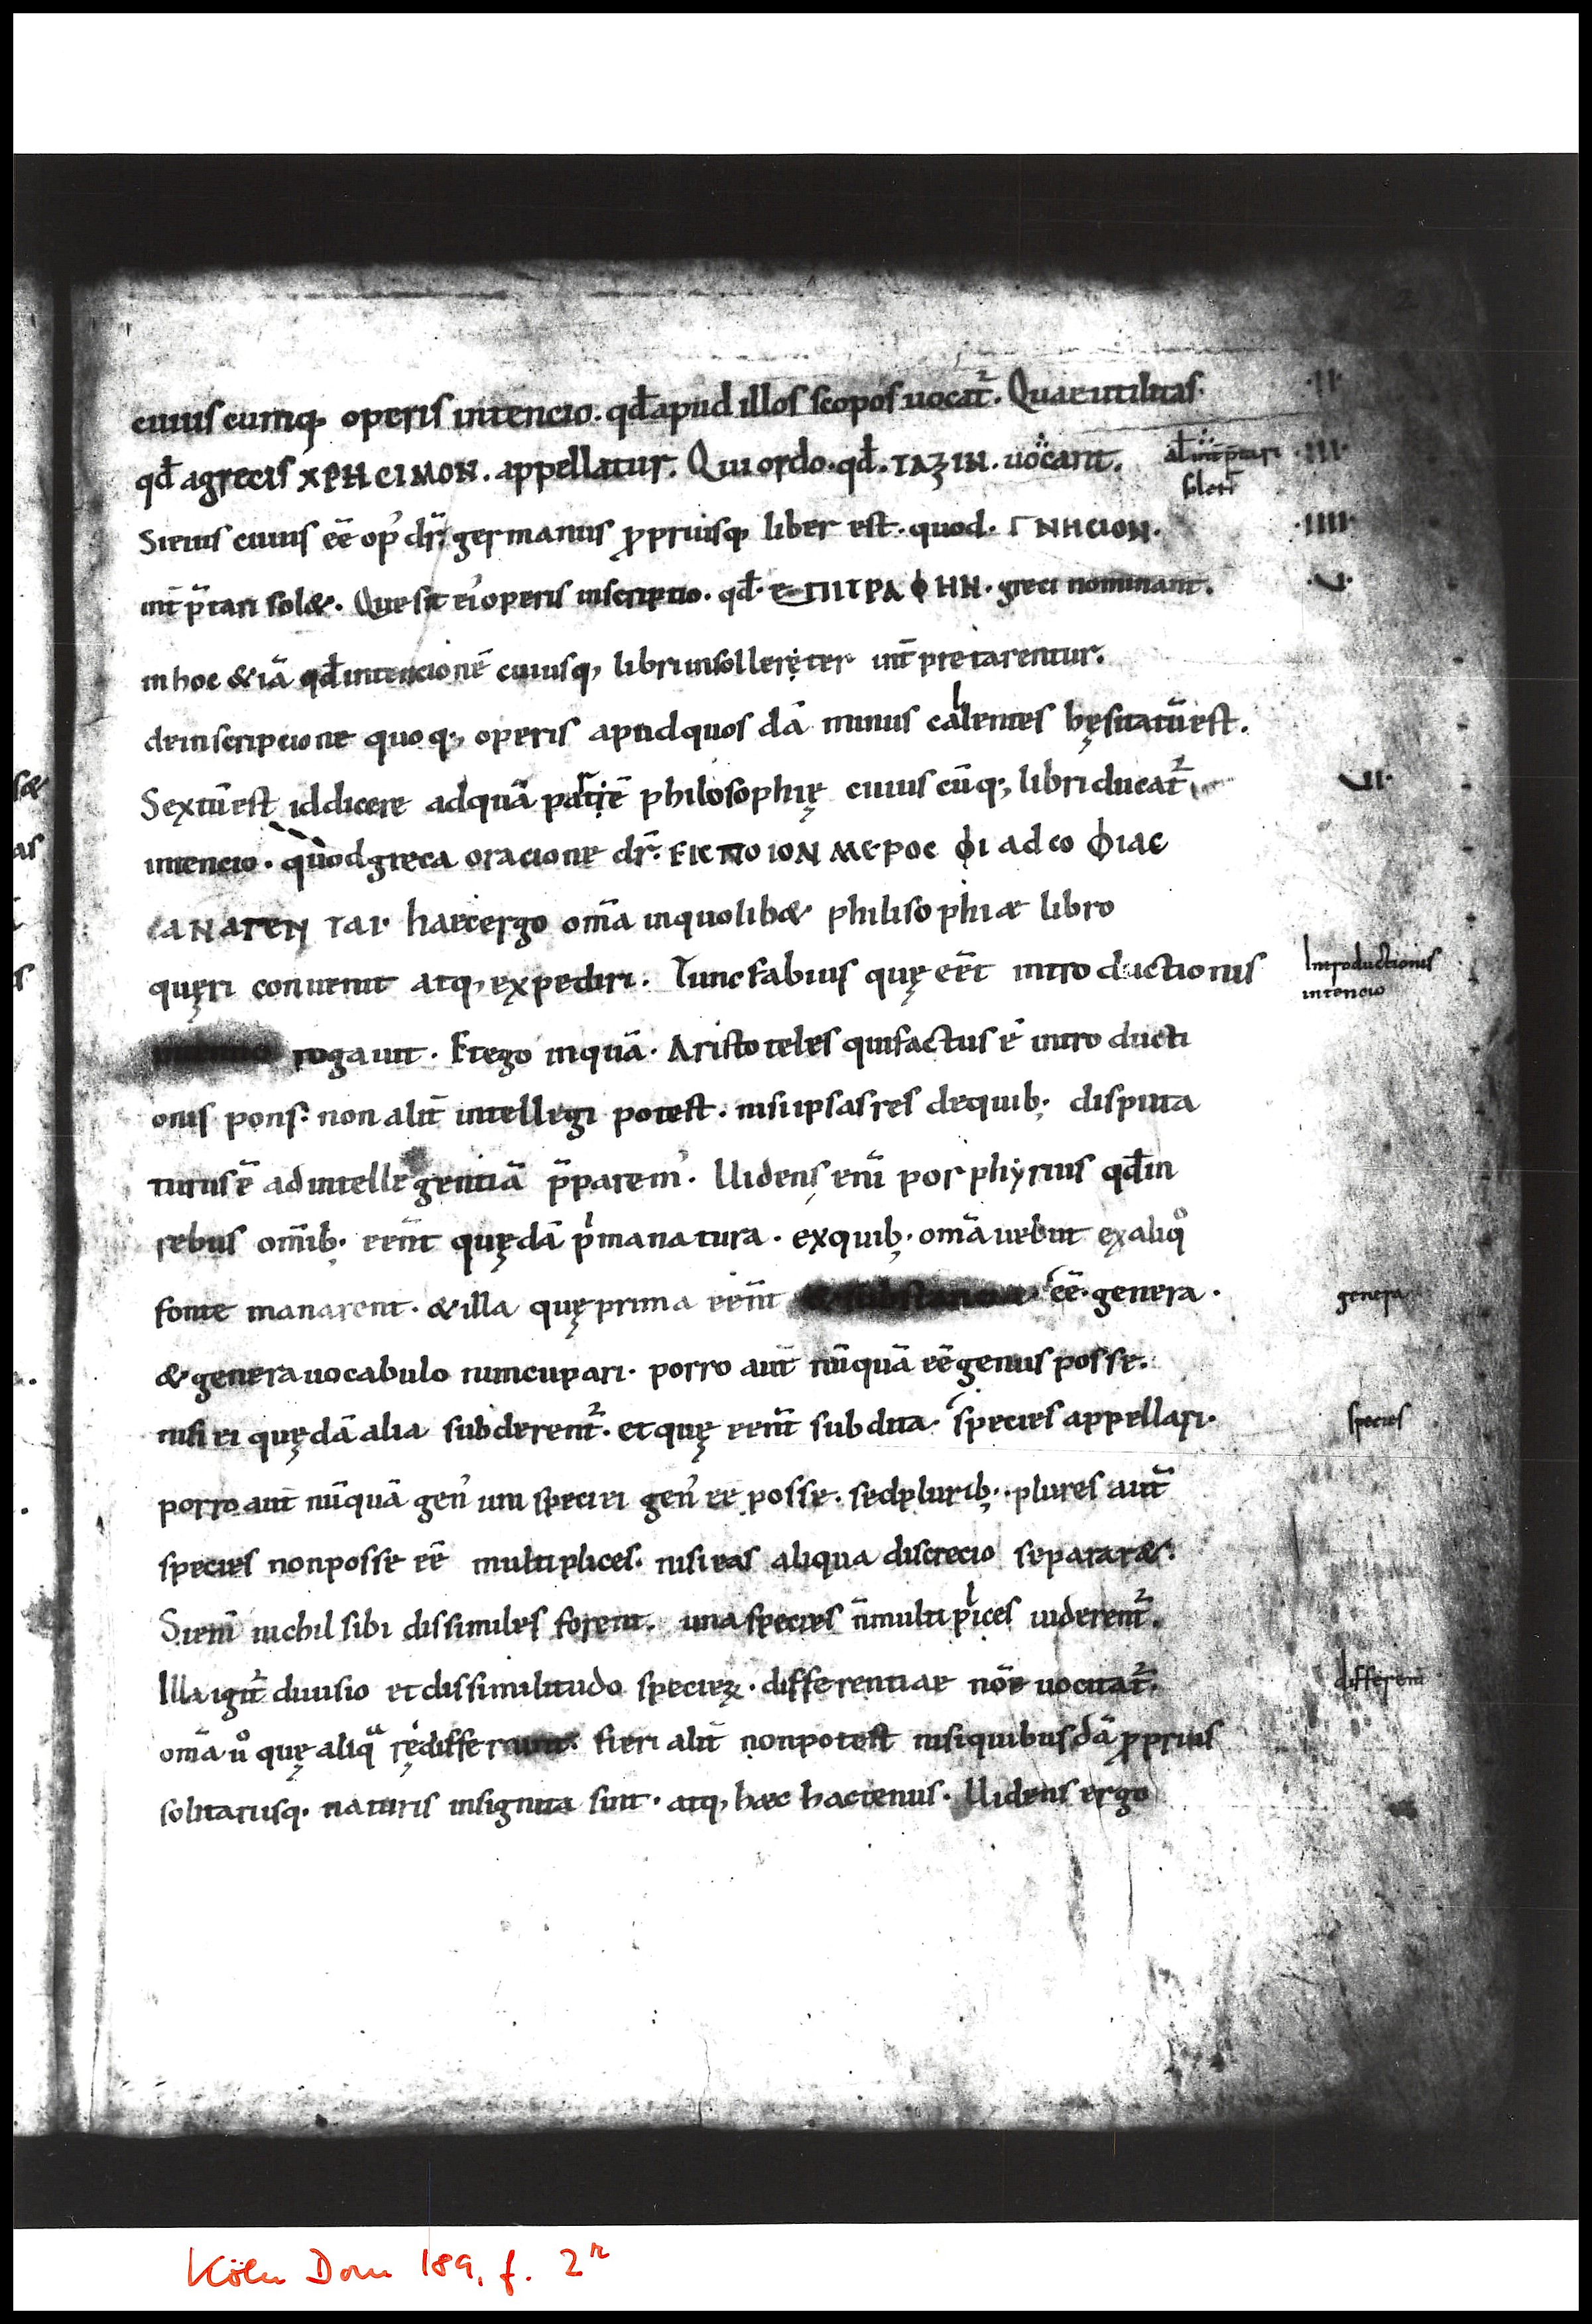 cuius cumq; operis intencio. qđ apud illos scopos uocat̄. Quae utilitas·
·II·
qđ agrecis ΧΡΗCΙΜΟΝ. appellatur. Qui ordo. qđ. ΤΑΞΙΝ. uocant.
·III·
Si eius cuius eē op' dr̄. germanus p̄priusq; liber est. quod. ΓΝΗCΙΟΝ.
·IIII·
int̄ p̄tari sol&. Quę sit ei' operis inscriptio. qđ. ЄΠΙΓΡΑΦΗΝ. greci nominant.
·V·
in hoc &iā qđ intencionē cuiusq; libri insolleręter int̄ pretarentur.
de inscripcione quoq;, operis apud quos dā minus callentes hęsitatū est.
Sextū est id dicere ad quā partē philosophię cuius cūq; libri ducat̄
VI·
intencio. quod greca oracione dr̄. ЄΙC ΠΟΙΟΝ ΜЄΡΟC ΦΙ
haec ergo om̄a in quolib& philisophiae libro
quęri conuenit atq; expediri. Tunc fabius quę eēt introductionis
Introductionis
intencio
rogauit. Et ego inquā. Aristoteles qui factus ē introducti
onis pons: non alit̄ intellegi potest. nisi ipsas res de quib; disputa
turus ē ad intellegentiā p̄parem'. Uidens enī porphyrius qđ in
rebus om̄ib; eēnt quędā p'ma natura. ex quib; om̄a uelut ex aliq°
fonte manarent. & illa quę prima eēnt & substancia eē. genera.
genera
& genera uocabulo nuncupari. porro aut̄ nūquā eē genus posse.
nisi ei quędā alia subderent̄. et quę eēnt subdita. species appellari.
species
porro aut̄ nūquā gen' uni speciei gen' eē posse. sed plurib;. plures aut̄
species non posse eē multiplices. nisi eas aliqua discrecio separar&.
Si enī nichil sibi dissimiles forent. una species n̄ multiplices uiderent̄.
Illa igit̄ diuisio et dissimilitudo specierꝝ. differentiae nōe uocitat̄.
different
om̄a u° quę aliq̄ rę differunt. fieri alit̄ non potest nisi quibusdā p̄priis
solitariisq;. naturis insignita sint. atq; hęc hactenus. Uidens ergo
Köln Dom 189, f. 2r